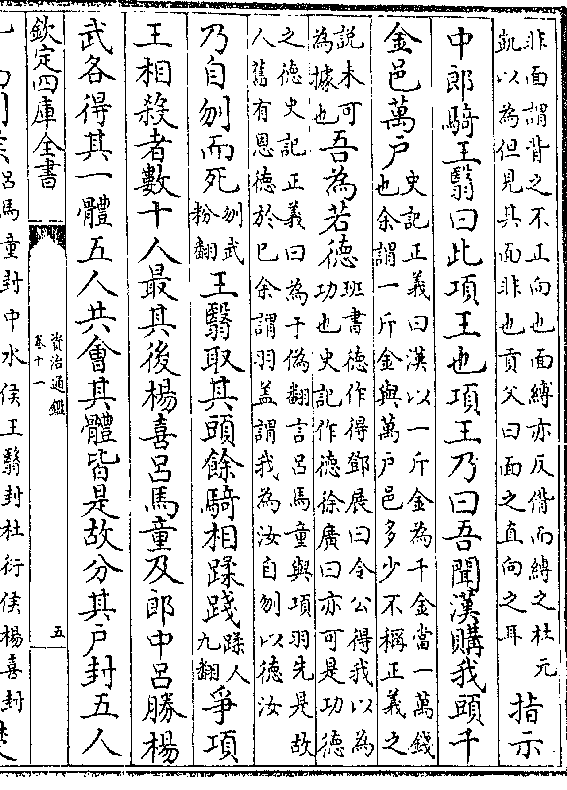 非面謂背之不正向也面縛亦反偝而縛之杜元
凱以為但見其面非也貢父曰面之直向之耳
指示
中郎騎王翳曰此項王也項王乃曰吾聞漢購我頭千
金邑萬戶
史記正義曰漢以一斤金為千金當一萬錢
也余謂一斤金與萬戶邑多少不稱正義之
說未可
為據也
吾為若德
班書德作得鄧展曰令公得我以為
功也史記作德徐廣曰亦可是功德
之德史記正義曰為于偽翻言呂馬童與項羽先是故
人舊有恩德於已余謂羽盖謂我為汝自刎以德汝
乃自刎而死
刎武
粉翻
王翳取其頭餘騎相蹂踐
蹂人
九翻
爭項
王相殺者數十人最其後楊喜呂馬童及郎中呂勝楊
武各得其一體五人共會其體皆是故分其戶封五人
欽定四庫全書
資治通鑑
卷十一
五
呂馬童封中水侯王翳封杜衍侯楊喜封